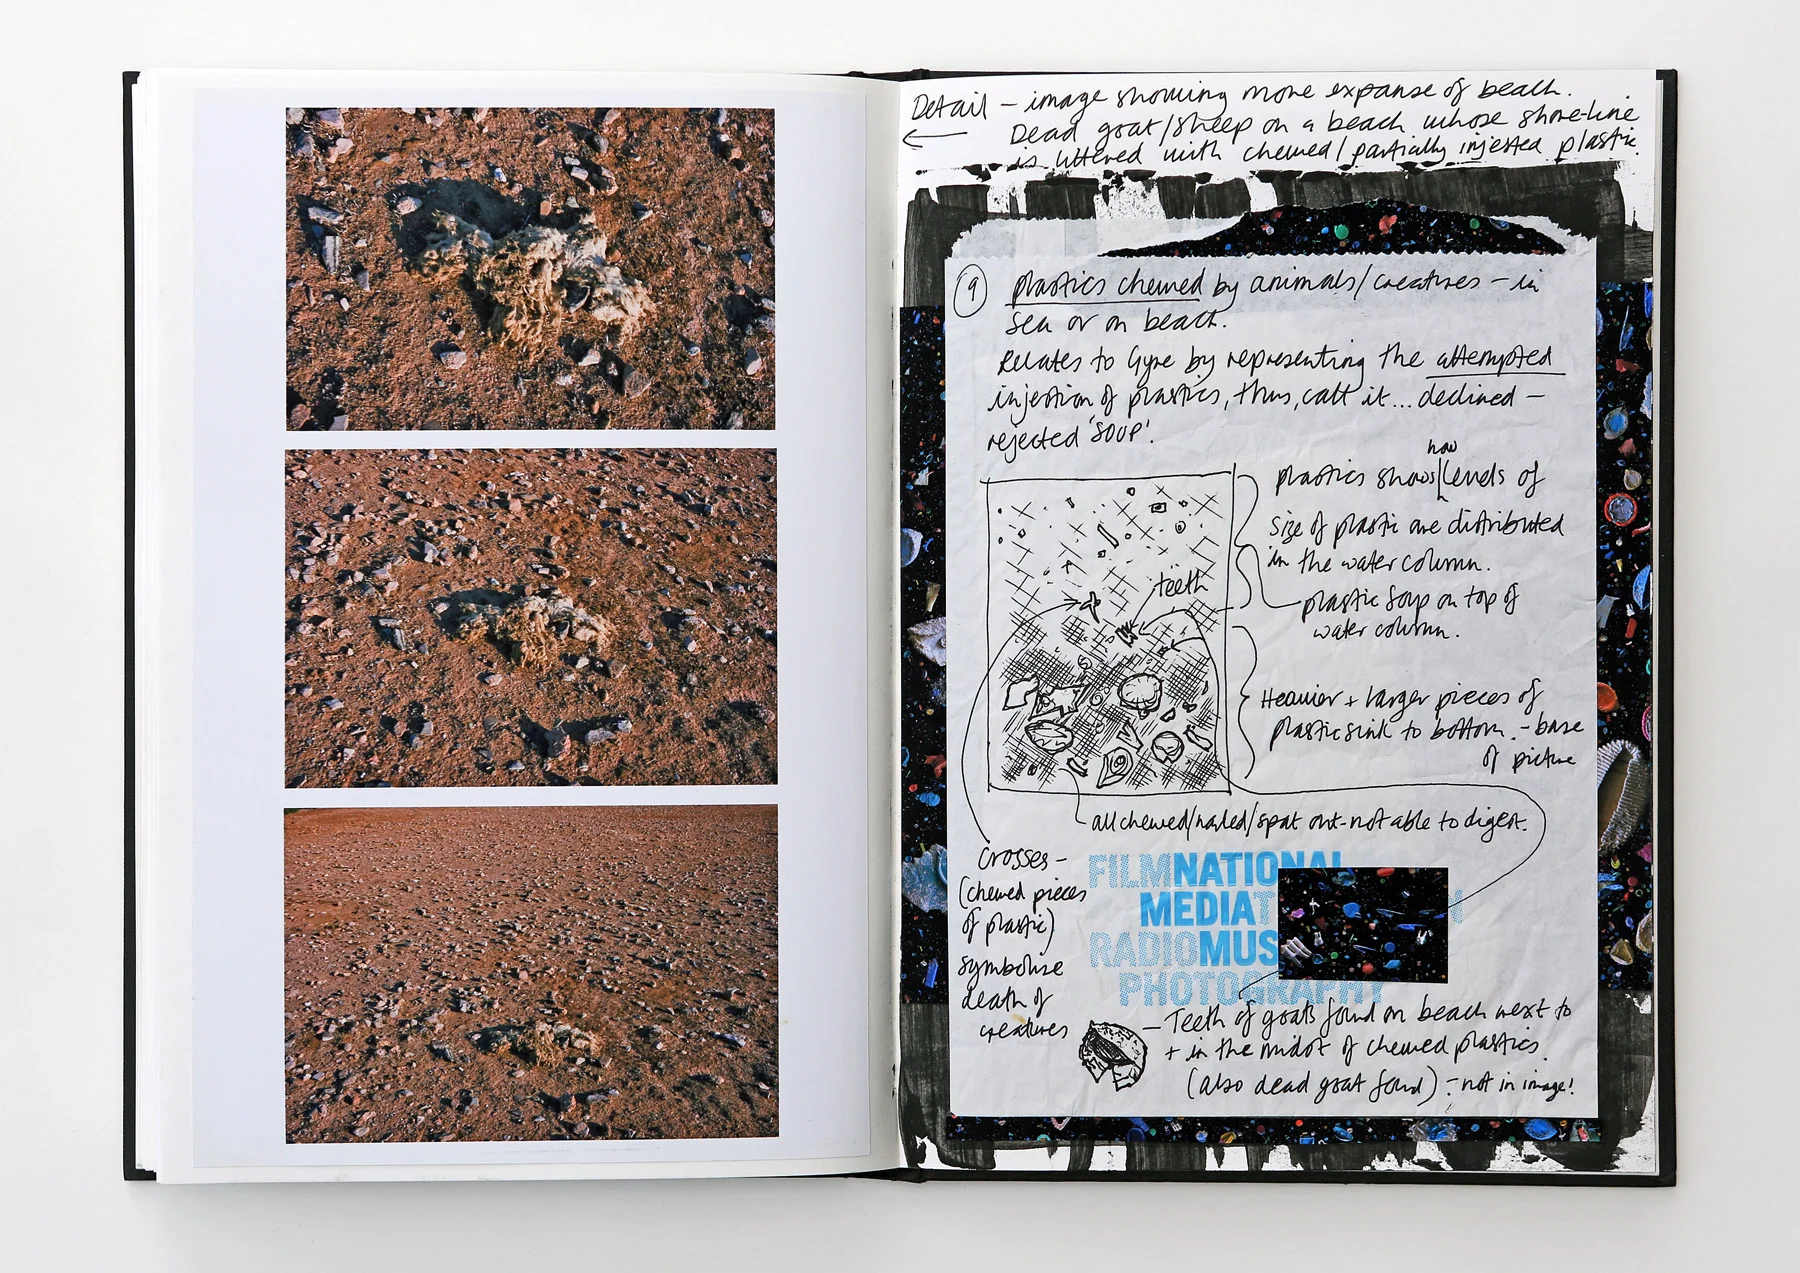 Detail – image showing more expanse of beach.
Dead goat/sheep on a beach whose shore-line
is littered with chewed/partially injested plastic.
9 plastics chewed by animals/creatures – in
sea or on beach.
Relates to Gyre by representing the attempted
injestion of plastics, thus, call it... declined –
rejected 'SOUP'.
how
plastics shows levels of
size of plastic are distributed
in the water column.
teeth
plastic soup on top of
water column.
Heavier + larger pieces of
plastic sink to bottom. – base
of picture
all chewed/naded/spat out – not able to digest.
crosses –
(chewed pieces
of plastic)
symbolise
death of
creatures
FILMNATIONAL
MEDIAT
RADIOMUS
PHOTOGRAPHY
– Teeth of goats found on beach next to
+ in the midst of chewed plastics.
(also dead goat found) – not in image!